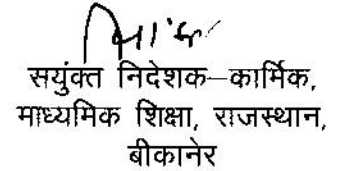 सयुंक्त निदेशक–कार्मिक,
माध्यमिक शिक्षा, राजस्थान,
बीकानेर